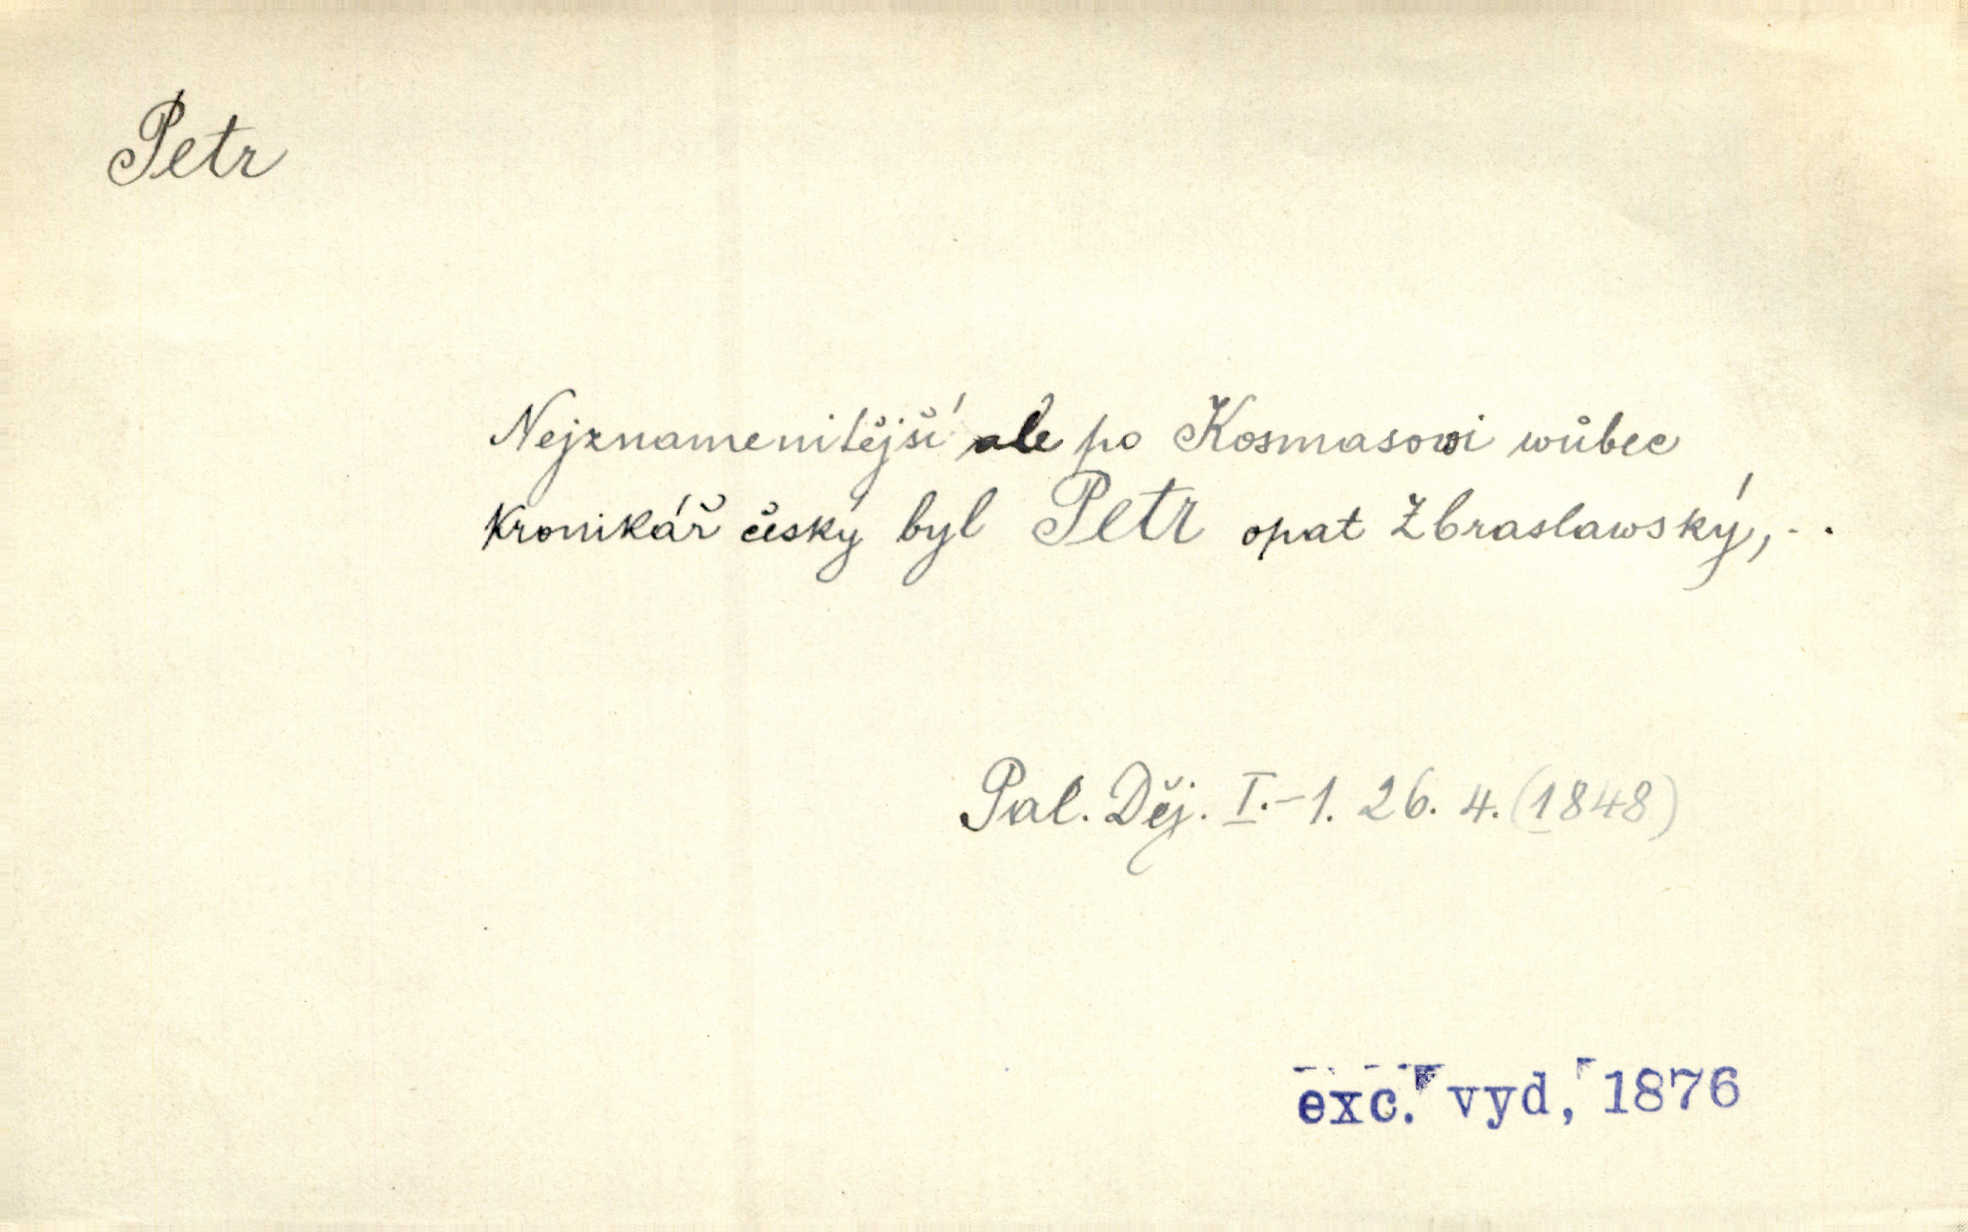 Petr
Nejznamenitější ale po Kosmasowi wůbec
kronikář český byl Petr opat Zbraslawský, . .
Pal. Děj. I.-1. 26. 4. (1848)
exc. vyd, 1876